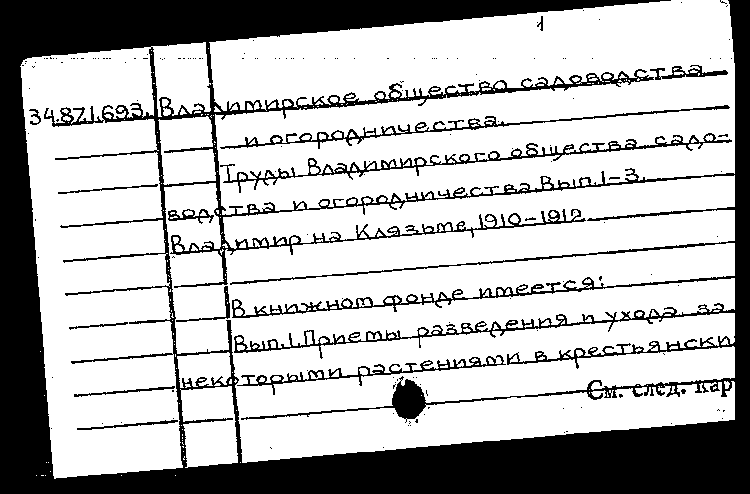 1
34.87.1.693. Владимирское общество садоводства
и огородничества.
Труды Владимирского общества садо-
водства и огородничества. Вып. 1-3.
Владимир на Клязьме, 1910-1912
В книжном фонде имеется:
Вып. 1. Приемы разведения и ухода за
некоторыми растениями в крестьянски
См. след. кар